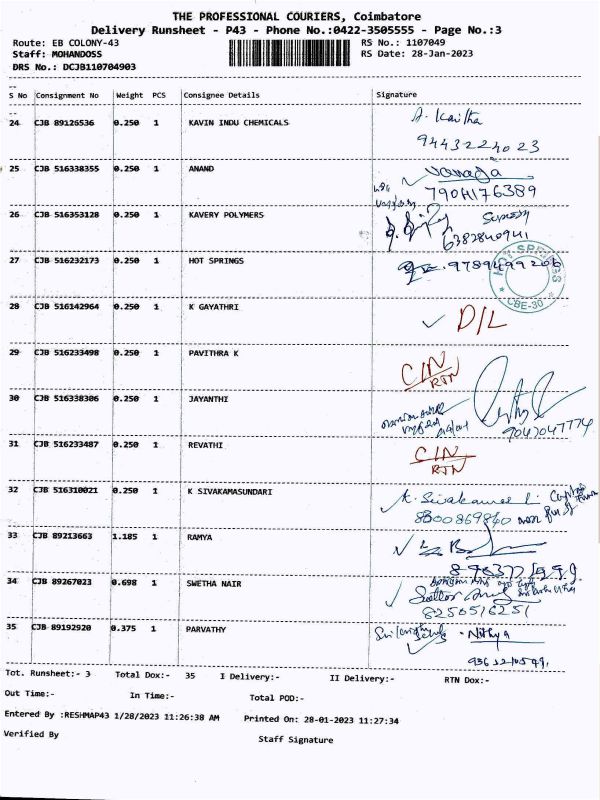 THE PROFESSIONAL COURIERS, Coimbatore
Delivery Runsheet - P43 - Phone No.:0422-3505555 - Page No.:3
Route: EB COLONY-43 RS No.: 1107049
Staff: MOHANDOSS RS Date: 28-Jan-2023
DRS No.: DCJB110704903
S No Consignment No Weight PCS Consignee Details Signature
24 CJB 89126536 0.250 1 KAVIN INDU CHEMICALS
9443224023
25 CJB 516338355 0.250 1 ANAND
26 CJB 516353128 0.250 1 KAVERY POLYMERS
6382840941
27 CJB 516232173 0.250 1 HOT SPRINGS 9789499206
HOT SPRINGS
CBE-30
28 CJB 516142964 0.250 1 K GAYATHRI D/L
29 CJB 516233498 0.250 1 PAVITHRA K C/N
RTN
30 CJB 516338306 0.250 1 JAYANTHI
9047047774
31 CJB 516233487 0.250 1 REVATHI C/N
RTN
32 CJB 516310021 0.250 1 K SIVAKAMASUNDARI
33 CJB 89213663 1.185 1 RAMYA
34 CJB 89267023 0.698 1 SWETHA NAIR
8250516251
35 CJB 89192920 0.375 1 PARVATHY Nithya
Tot. Runsheet:- 3 Total Dox:- 35 I Delivery:- II Delivery:- RTN Dox:-
Out Time:- In Time:- Total POD:-
Entered By :RESHMAP43 1/28/2023 11:26:38 AM Printed On: 28-01-2023 11:27:34
Verified By Staff Signature